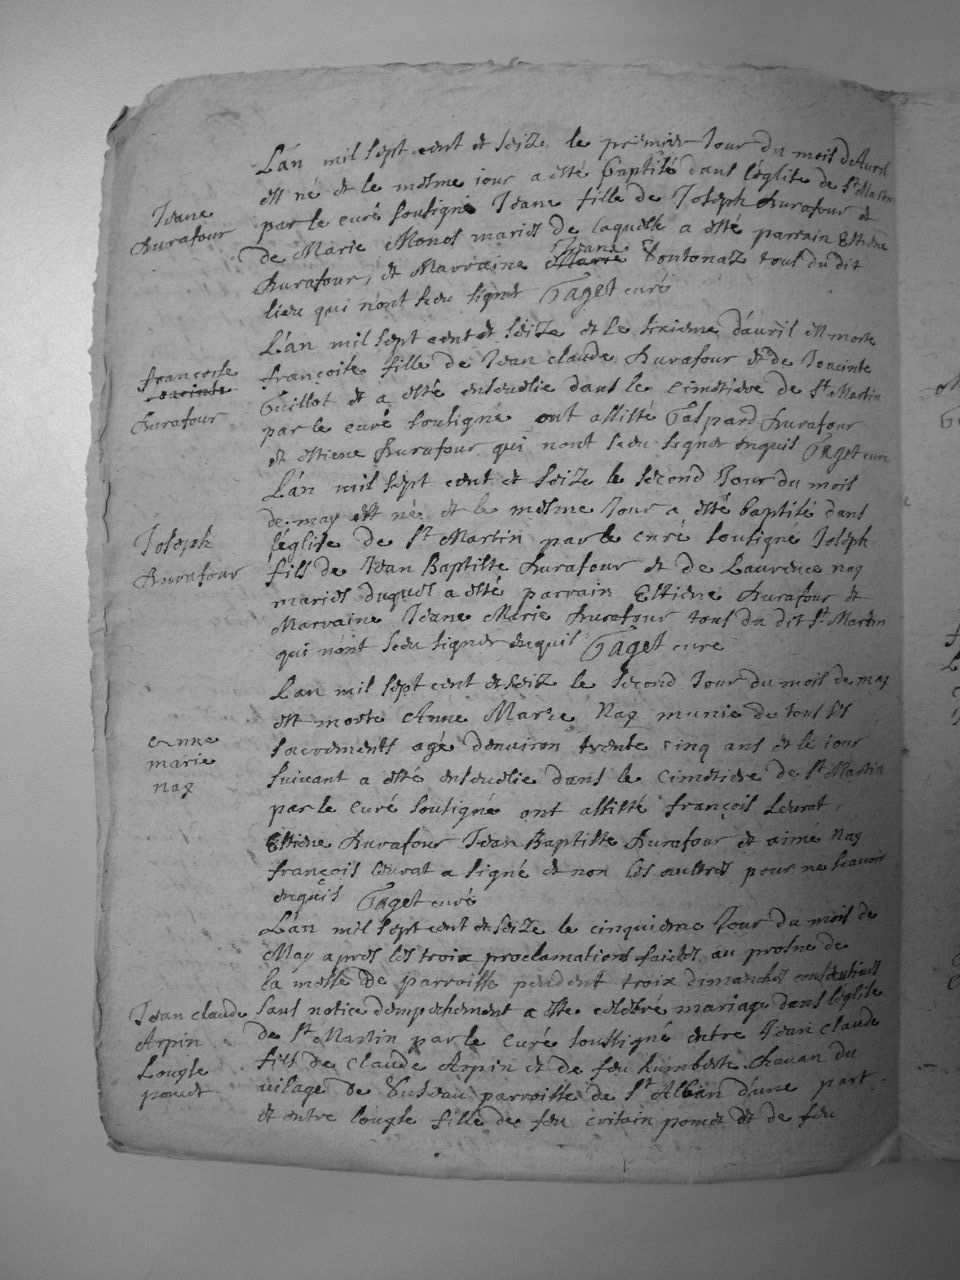 L'an mil sept cent et seize le premier jour du mois d'Avril
est né et le mesme jour a esté baptisé dans l'église de St Martin
Jeane
Durafour
par le curé soussigné Jeane fille de Joseph Durafour et
de Marie Monos mariés de laquelle a esté parrain Estiene
Durafour, et Marraine Jeane tous du dit
lieu qui n'ont sceu signer Gaget curé
L'an mil sept cent et seize et le sixieme d'avril est morte
françoise
Durafour
françoise fille de Jean claude Durafour et de Jacinte
Guillot et a esté ensevelie dans le cimetiere de St Martin
par le curé soussigné ont assisté Gaspard Durafour
et estiene Durafour qui n'ont sceu signer enquis Gaget curé
L'an mil sept cent et seize le second Jour du mois
de may est né et le mesme Jour a esté baptisé dans
Joseph
Durafour
l'église de St Martin par le curé soussigné Joseph
fils de Jean Baptiste Durafour et de Laurence nay
mariés duquel a esté parrain Estiene Durafour et
Marraine Jeane Marie Durafour tous du dit St Martin
qui n'ont sceu signer enquis Gaget curé
L'an mil sept cent et seize le second Jour du mois de may
est morte Anne Marie Nay munie de tous ses
Anne
marie
nay
sacrements agé d'environ trente cinq ans et le jour
suivant a esté ensevelie dans le cimetiere de St Martin
par le curé soussigné ont assisté françois
Estiene Durafour Jean Baptiste Durafour et aimé Nay
françois a signé et non les aultres pour ne scavoir
enquis Gaget curé
L'an mil sept cent et seize le cinquieme Jour du mois de
May apres les troix proclamations faictes au prosne de
la messe de parroisse pendent troix dimanches consecutives
Jean claude
Arpin
pomet
sans notice d'empechement a esté celebré mariage dans l'église
de St Martin par le curé soussigné entre Jean claude
fils de claude Arpin et de feu humberte du
vilage de parroisse de St Alban d'une part
et entre fille de feu pomet et de feu